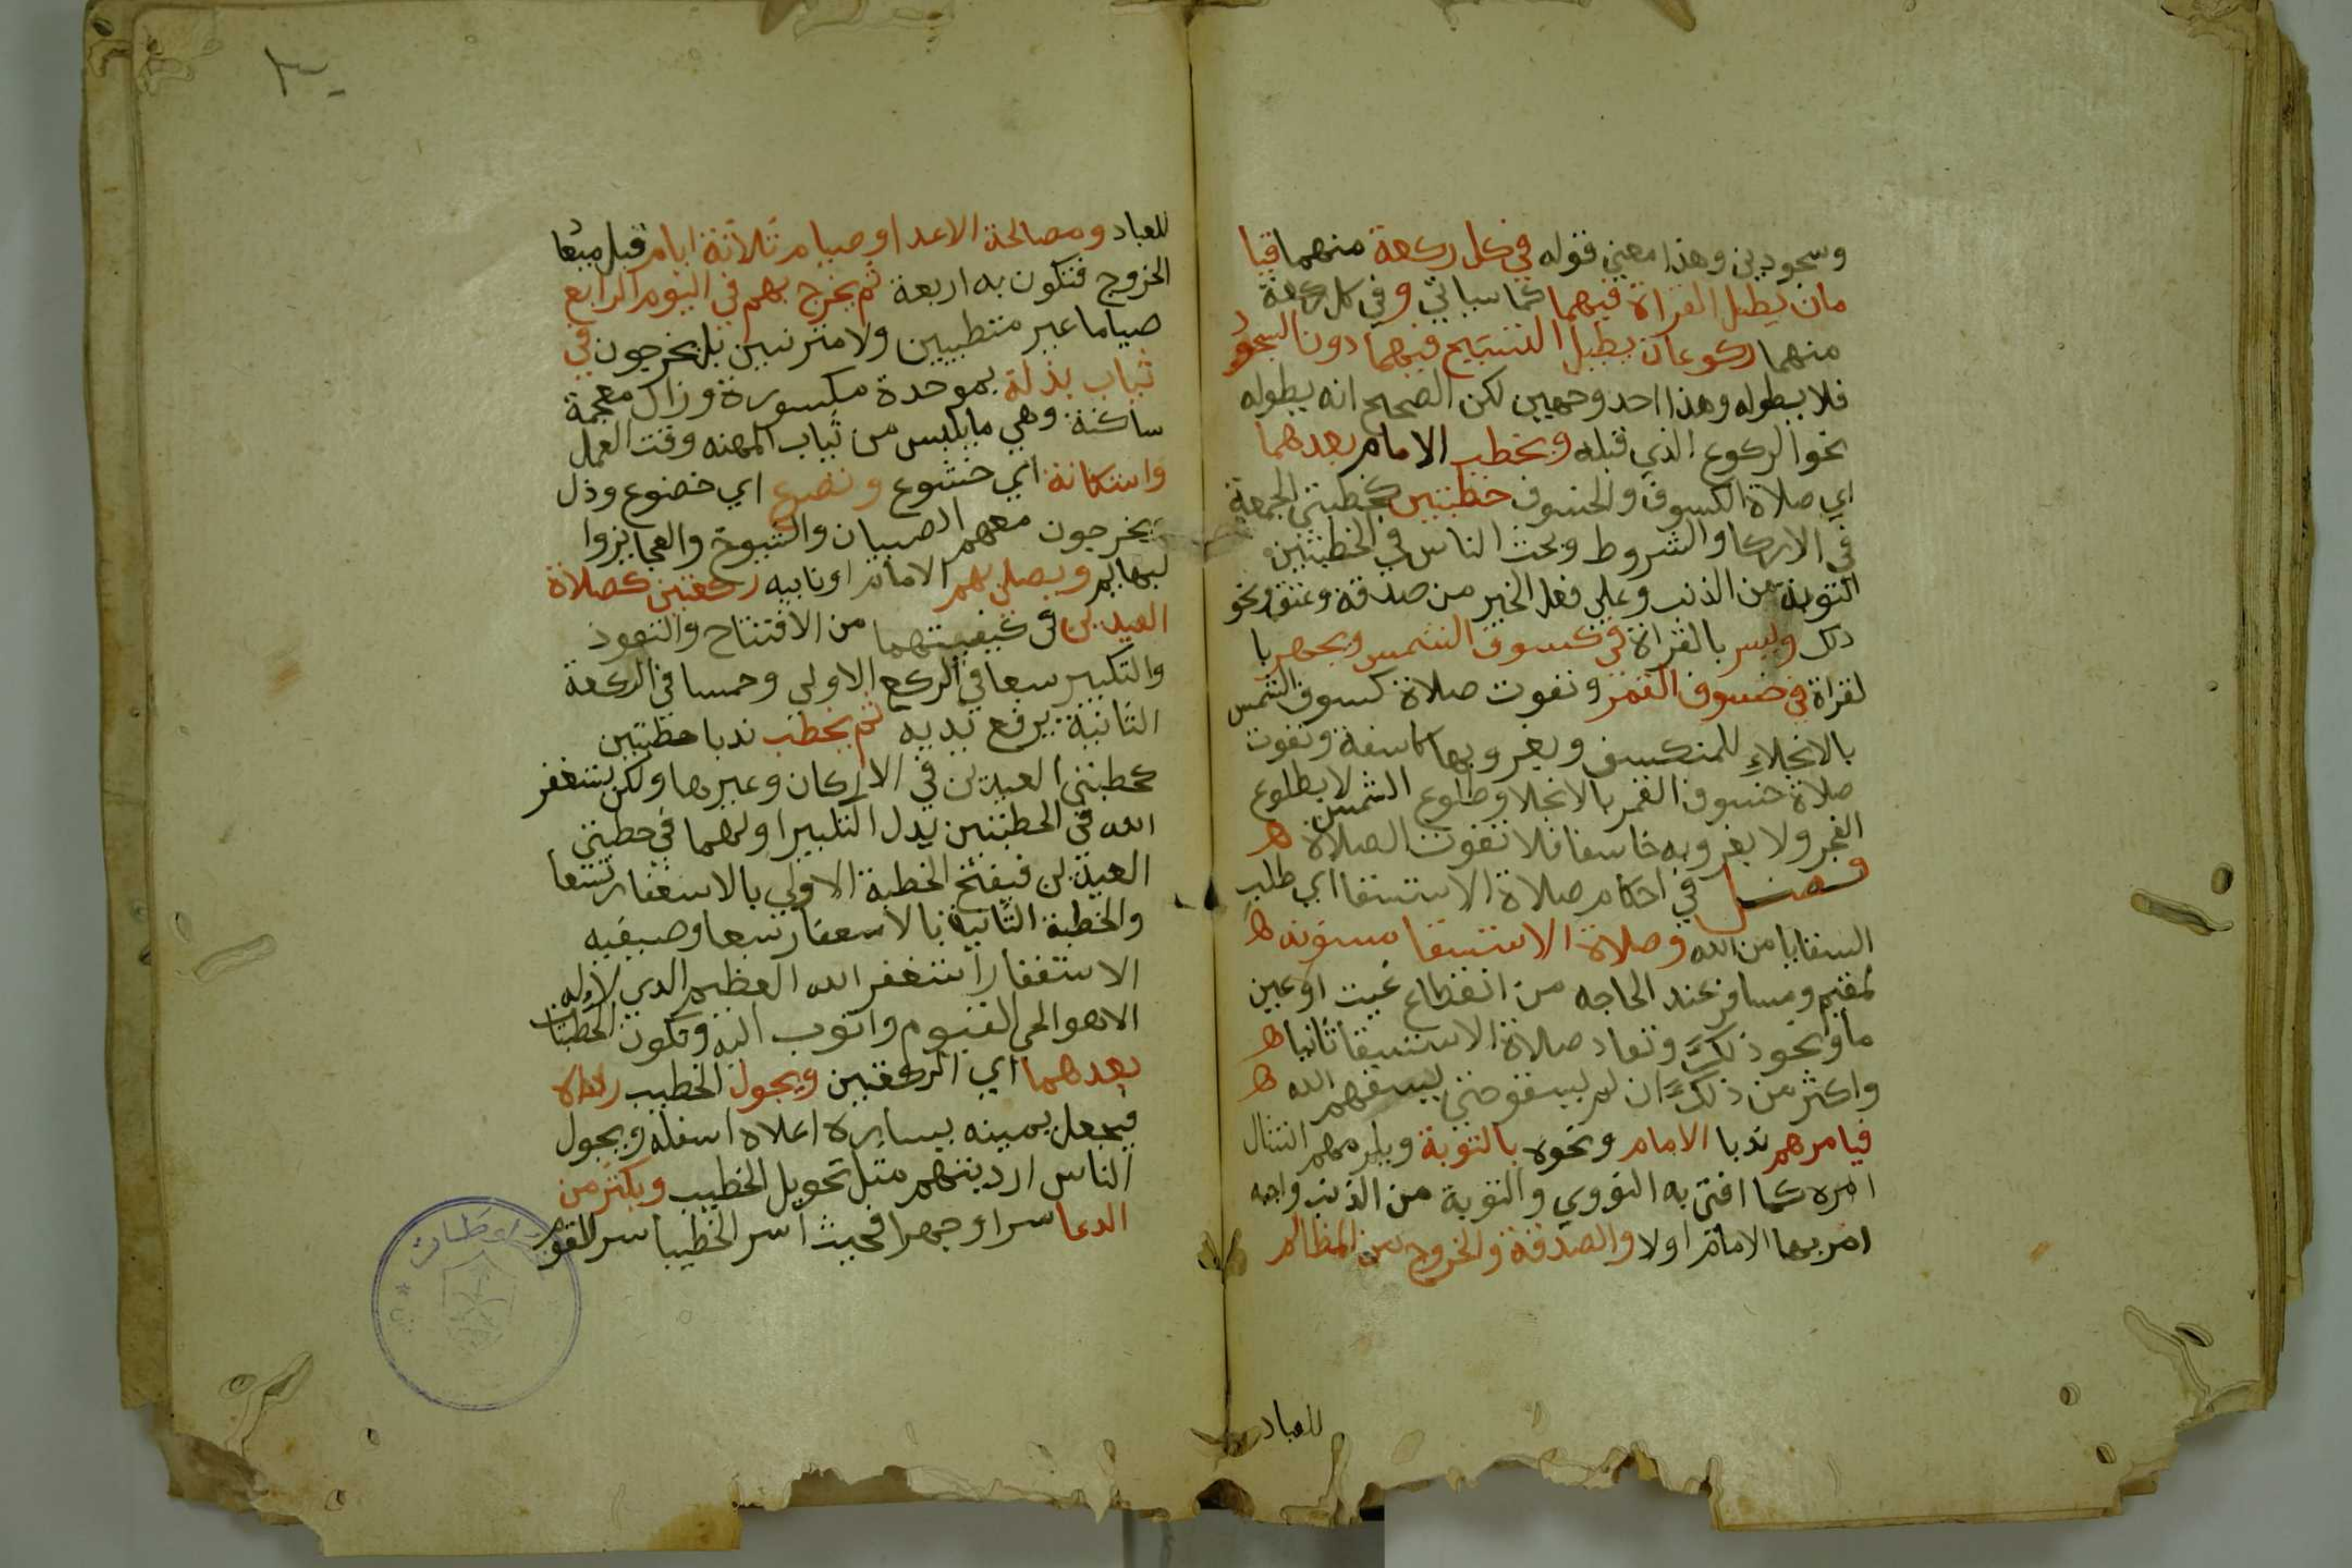 وسجودين وهذا معني قوله في كل ركعة منهما قيا
مان يطيل القراة فيهما كما سياتي وفي كل ركعة
منهما ركوعان يطيل التسبيح فيهما دون السجود
فلا يطوله وهذا احد وجهين لكن الصحيح انه يطوله
نحو الركوع الذي قبله ويخطب الامام بعدهما
اي صلاة الكسوف والخسوف خطبتين كخطبتي الجمعة
في الاركا والشروط ويحث الناس في الخطبتين
التوبة من الذنب وعلي فعل الخير من صدقة وعتق ونحو
ذلك ويسر بالقراة في كسوف الشمس ويجهر با
لقراة في خسوف القمر وتفوت صلاة كسوف الشمس
بالانجلاءِ للمنكسف وبغروبها كاسفة وتفوت
صلاة خسوف القمر بالانجلا وطلوع الشمس لا بطلوع
الفجر ولا بغروبه خاسفا فلا تفوت الصلاة ه
فصل في احكام صلاة الاستسقا اي طلب
السقايا من الله وصلاة الاستسقا مسنونه ه
لمقيم ومسافر عند الحاجه من انقطاع غيث او عين
ما ونحو ذلك وتعاد صلاة الاستسقا ثانيا ه
واكثر من ذلك ان لم يسقو حتي يسقهم الله ه
فيامرهم ندبا الامام ونحوه بالتوبة ويلزمهم امتثال
امره كما افتي به النووي والتوبة من الذنب واجبه
امر بها الامام اولا والصدقة والخروج من المظالم
للعباد
للعباد ومصالحة الاعدا وصيام ثلاثة ايام قبل ميعا
الخروج فتكون به اربعة ثم يخرج بهم في اليوم الرابع
صياما غير متطيبين ولا متزينين بل يخرجون في
ثياب بذلة بموحدة مكسورة وذال معجمة
ساكنة وهي ما يلبس من ثياب المهنه وقت العمل
واستكانة اي خشوع وتضرع اي خضوع وذل
ويخرجون معهم الصبيان والشيوخ والعجايز وا
لبهايم ويصلي بهم الامام او نايبه ركعتين كصلاة
العيدين في كيفيتهما من الافتتاح والتعوذ
والتكبير سبعا في الركع الاولي وخمسا في الركعة
الثانية يرفع يديه ثم يخطب ندبا خطبتين
كخطبتي العيدين في الاركان وغيرها ولكن يستغفر
الله في الخطبتين بدل التكبير اولهما في خطبتي
العيدين فيفتح الخطبة الاولي بالاستغفار تسعا
والخطبة الثانية بالاستغفار سبعا وصيغيه
الاستغفار استغفر الله العظيم الذي لا اله
الا هو الحي القيوم واتوب اليه وتكون الخطبتان
بعدهما اي الركعتين ويحول الخطيب رداه
فيجعل يمينه يساره اعلاه اسفله ويحول
الناس ارديتهم مثل تحويل الخطيب ويكثر من
الدعا سرا وجهرا فحيث اسر الخطيب اسر القوم